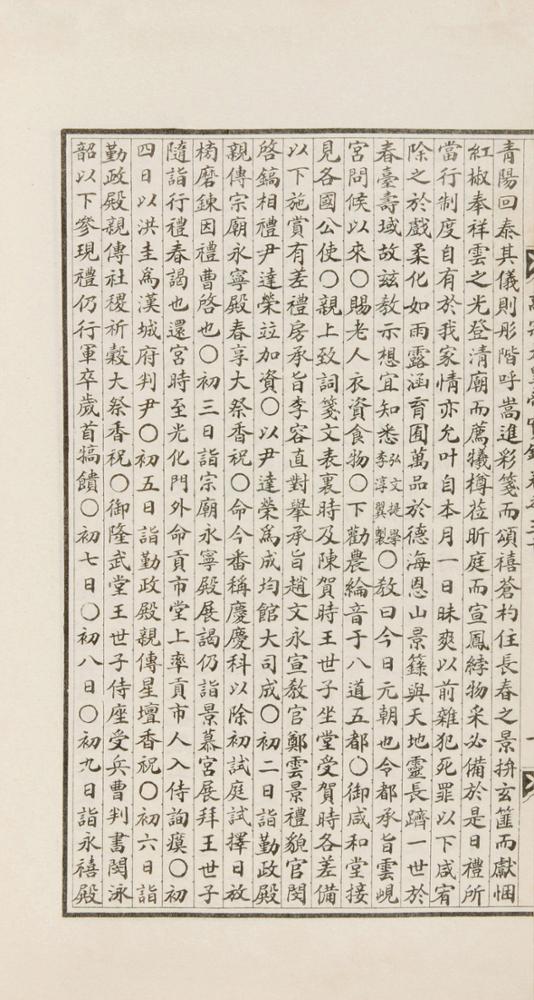 青陽回泰其儀則彤階呼嵩進彩箋而頌禧蒼杓住長春之景拚玄篚而獻悃
紅椒奉祥雲之光登清廟而薦犧樽莅昕庭而宣鳳綍物采必備於是日禮所
當行制度自有於我家情亦允叶自本月一日昧爽以前雜犯死罪以下咸宥
除之於戲柔化如雨露涵育囿萬品於德海恩山景籙與天地靈長躋一世於
春臺壽域故玆敎示想宜知悉弘文提學李淳翼製〇敎曰今日元朝也令都承旨雲峴
宮問候以來〇賜老人衣資食物〇下勸農綸音于八道五都〇御咸和堂接
見各國公使〇親上致詞箋文表裏時及陳賀時王世子坐堂受賀時各差備
以下施賞有差禮房承旨李容直對擧承旨趙文永宣敎官鄭雲景禮貌官閔
啓鎬相禮尹達榮竝加資〇以尹達榮爲成均館大司成〇初二日詣勤政殿
親傳宗廟永寧殿春享大祭香祝〇命今番稱慶慶科以除初試庭試擇日放
榜磨鍊因禮曹啓也〇初三日詣宗廟永寧殿展謁仍詣景慕宮展拜王世子
隨詣行禮春謁也還宮時至光化門外命貢市堂上率貢市人入侍詢瘼〇初
四日以洪圭爲漢城府判尹〇初五日詣勤政殿親傳星壇香祝〇初六日詣
勤政殿親傳社稷祈穀大祭香祝〇御隆武堂王世子侍座受兵曹判書閔泳
韶以下參現禮仍行軍卒歲首犒饋〇初七日〇初八日〇初九日詣永禧殿